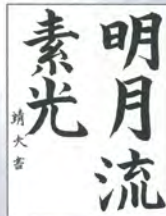 明月流
素光
靖大書